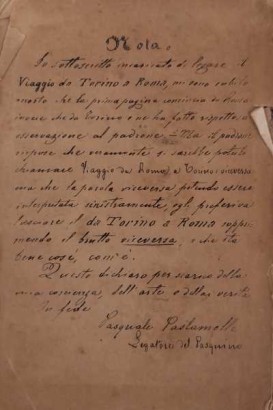 Nota.
Io sottoscritto incaricato di legare il
Viaggio da Torino a Roma, mi sono subito
che la prima pagina comincia da Roma
invece che da Torino e ne ho fatto rispettosa
osservazione al padrone. — Ma il padrone
rispose che
chiamare Viaggio da Roma a Torino
ma che la parola viceversa potendo essere
interpretata sinistramente, egli preferiva
lasciare il da Torino a Roma
il brutto viceversa, e che sta
bene così, com'è.
Questo dichiaro per della
mia coscienza, dell'arte e della verità
In fede
Pasquale
Legatore del